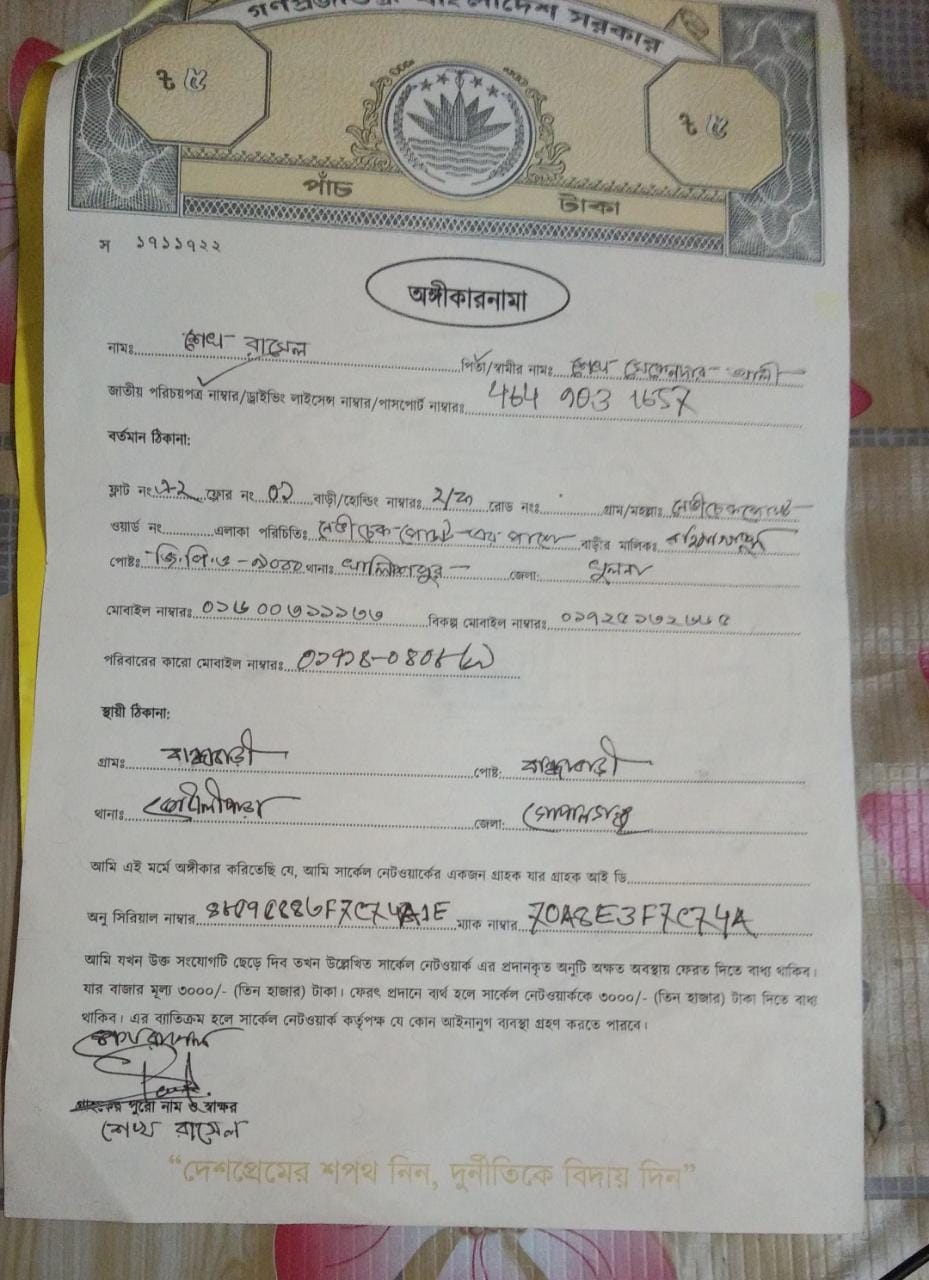 গণপ্রজাতন্ত্রী বাংলাদেশ সরকার
৳ ৫ ৳ ৫
পাঁচ টাকা
স ১৭১১৭২২
অঙ্গীকারনামা
নামঃ শেখ রাসেল পিতা/স্বামীর নামঃ শেখ আলী
জাতীয় পরিচয়পত্র নাম্বার/ড্রাইভিং লাইসেন্স নাম্বার/পাসপোর্ট নাম্বারঃ 464 903 1657
বর্তমান ঠিকানা:
ফ্লাট নং ফ্লোর নং ০১ বাড়ী/হোল্ডিং নাম্বারঃ রোড নংঃ গ্রাম/মহল্লাঃ
ওয়ার্ড নং এলাকা পরিচিতিঃ বাড়ীর মালিকঃ
পোষ্টঃ জি.পি.ও - ৯০০০ থানাঃ খালিশপুর জেলা: খুলনা
মোবাইল নাম্বারঃ বিকল্প মোবাইল নাম্বারঃ
পরিবারের কারো মোবাইল নাম্বারঃ
স্থায়ী ঠিকানা:
গ্রামঃ বান্ধাবাড়ী পোষ্ট: বান্ধাবাড়ী
থানাঃ কোটালীপাড়া জেলা: গোপালগঞ্জ
আমি এই মর্মে অঙ্গীকার করিতেছি যে, আমি সার্কেল নেটওয়ার্কের একজন গ্রাহক যার গ্রাহক আই ডি
অনু সিরিয়াল নাম্বার ম্যাক নাম্বার 70A8E3F7C74A
আমি যখন উক্ত সংযোগটি ছেড়ে দিব তখন উল্লেখিত সার্কেল নেটওয়ার্ক এর প্রদানকৃত অনুটি অক্ষত অবস্থায় ফেরত দিতে বাধ্য থাকিব।
যার বাজার মূল্য ৩০০০/- (তিন হাজার) টাকা। ফেরৎ প্রদানে ব্যর্থ হলে সার্কেল নেটওয়ার্ককে ৩০০০/- (তিন হাজার) টাকা দিতে বাধ্য
থাকিব। এর ব্যতিক্রম হলে সার্কেল নেটওয়ার্ক কর্তৃপক্ষ যে কোন আইনানুগ ব্যবস্থা গ্রহণ করতে পারবে।
গ্রাহকের পুরো নাম ও স্বাক্ষর
শেখ রাসেল
“দেশপ্রেমের শপথ নিন, দুর্নীতিকে বিদায় দিন”